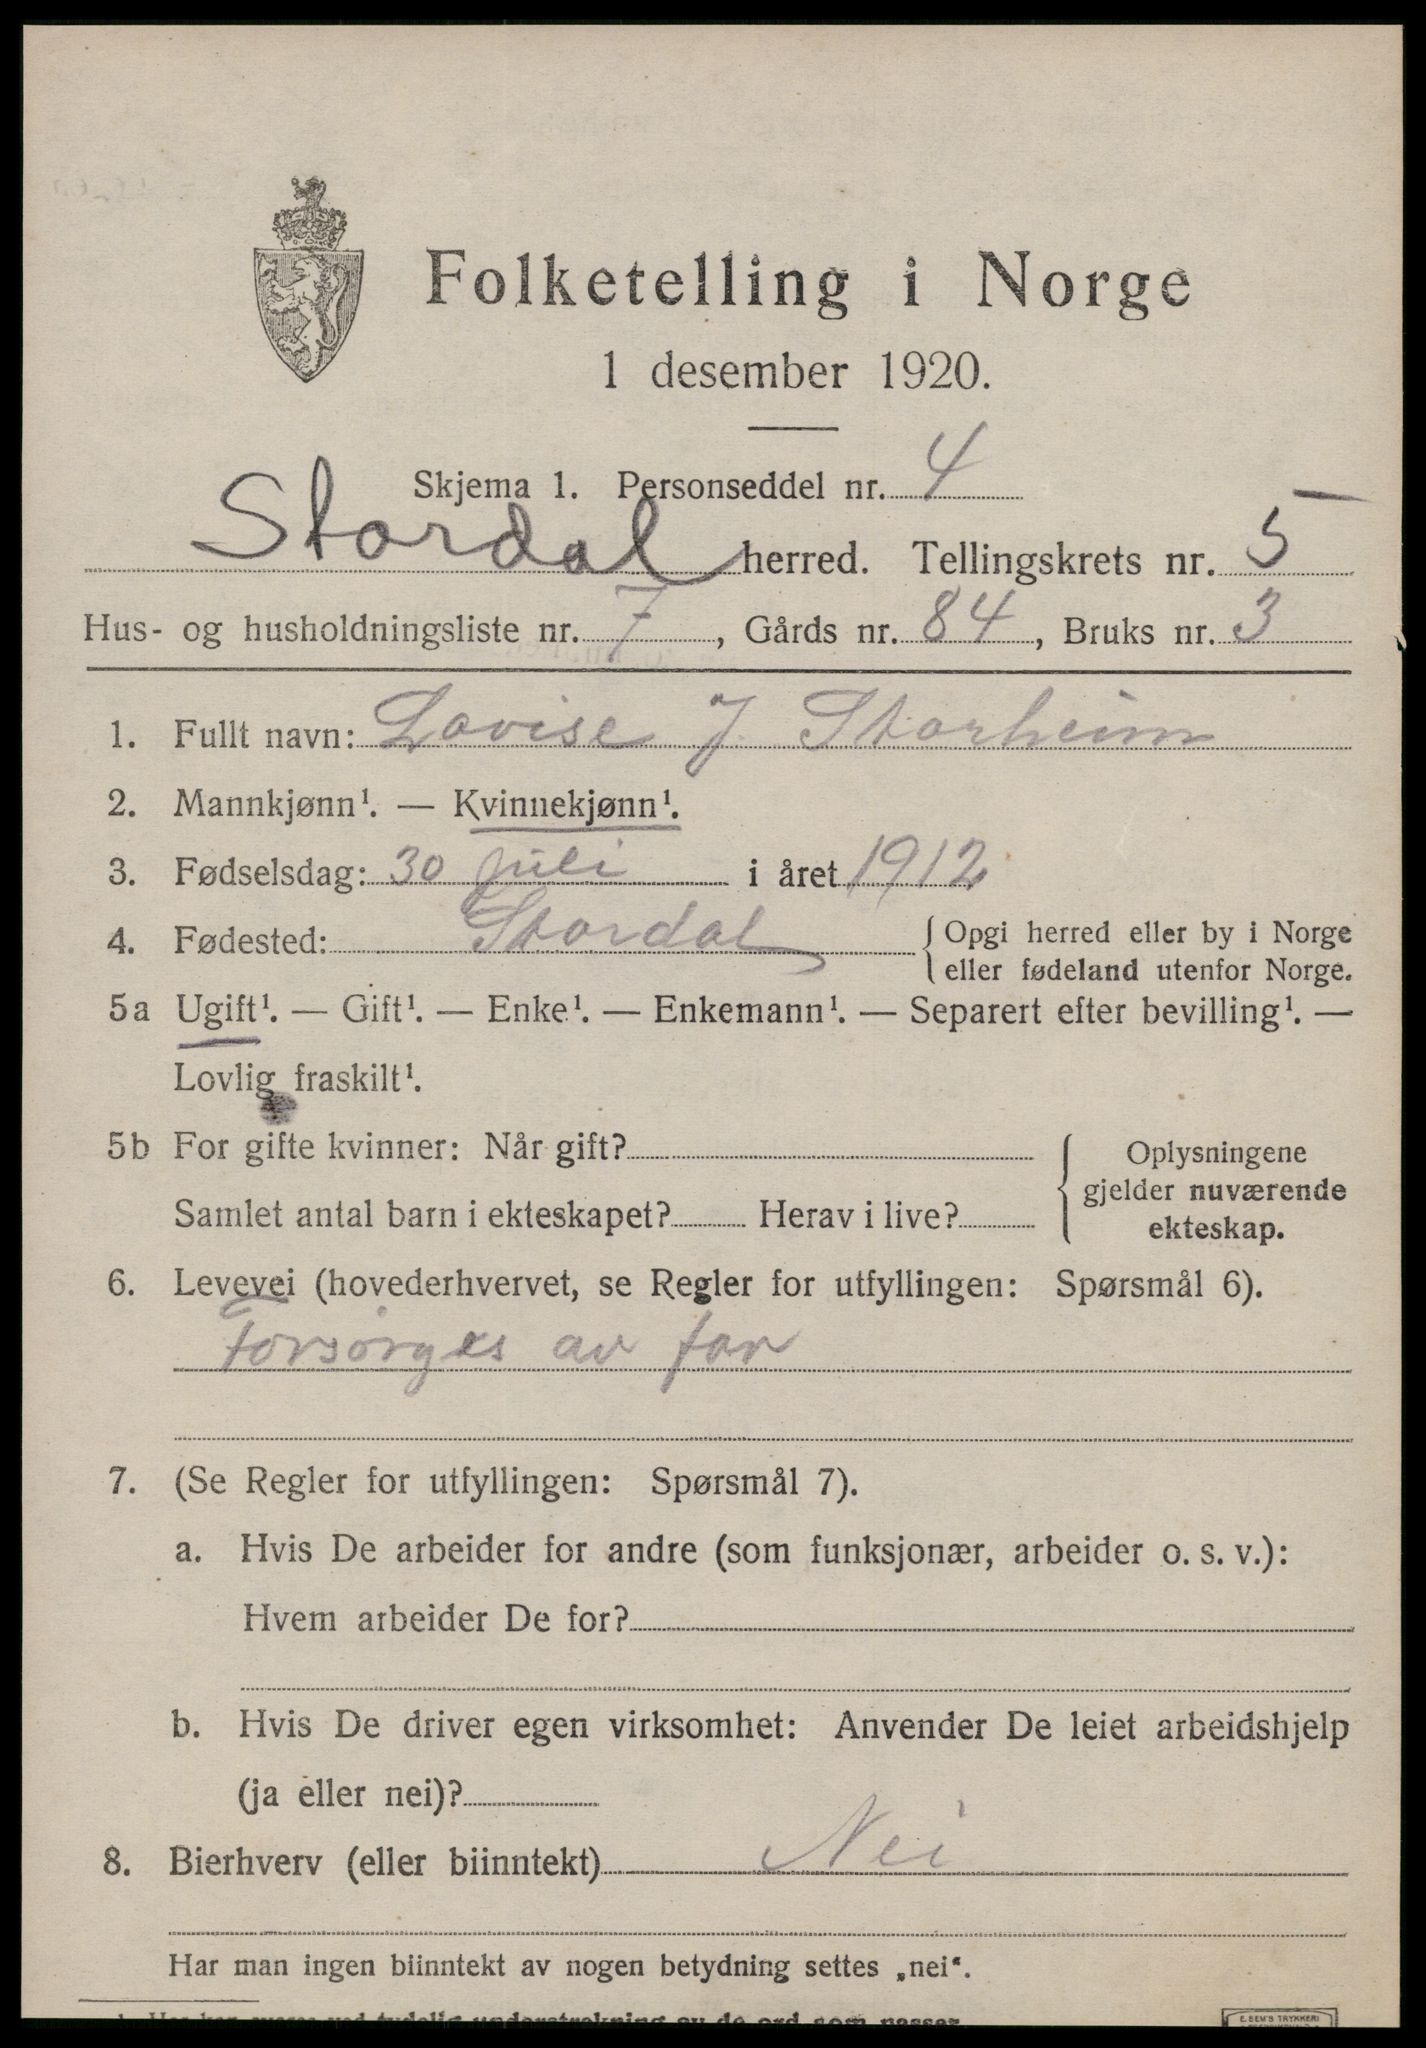 Folketelling i Norge
1 desember 1920.
Skjema 1. Personseddel nr. 4
Stordal herred. Tellingskrets nr. 5
Hus- og husholdningsliste nr. 7, Gårds nr. 84, Bruks nr. 3
1. Fullt navn: Lovise J. Storheim
2. Mannkjønn¹. — Kvinnekjønn¹.
3. Fødselsdag: 30 juli i året 1912
4. Fødested: Stordal { Opgi herred eller by i Norge
eller fødeland utenfor Norge.
5a Ugift¹. — Gift¹. — Enke¹. — Enkemann¹. — Separert efter bevilling¹. —
Lovlig fraskilt¹.
5b For gifte kvinner: Når gift?
Samlet antal barn i ekteskapet? Herav i live?
Oplysningene
gjelder nuværende
ekteskap.
6. Levevei (hovederhvervet, se Regler for utfyllingen: Spørsmål 6).
Forsørges av far
7. (Se Regler for utfyllingen: Spørsmål 7).
a. Hvis De arbeider for andre (som funksjonær, arbeider o. s. v.):
Hvem arbeider De for?
b. Hvis De driver egen virksomhet: Anvender De leiet arbeidshjelp
(ja eller nei)?
8. Bierhverv (eller biinntekt) Nei
Har man ingen biinntekt av nogen betydning settes „nei“.
tydelig understrekning av de ord som passer.
E. SEM'S TRYKKERI